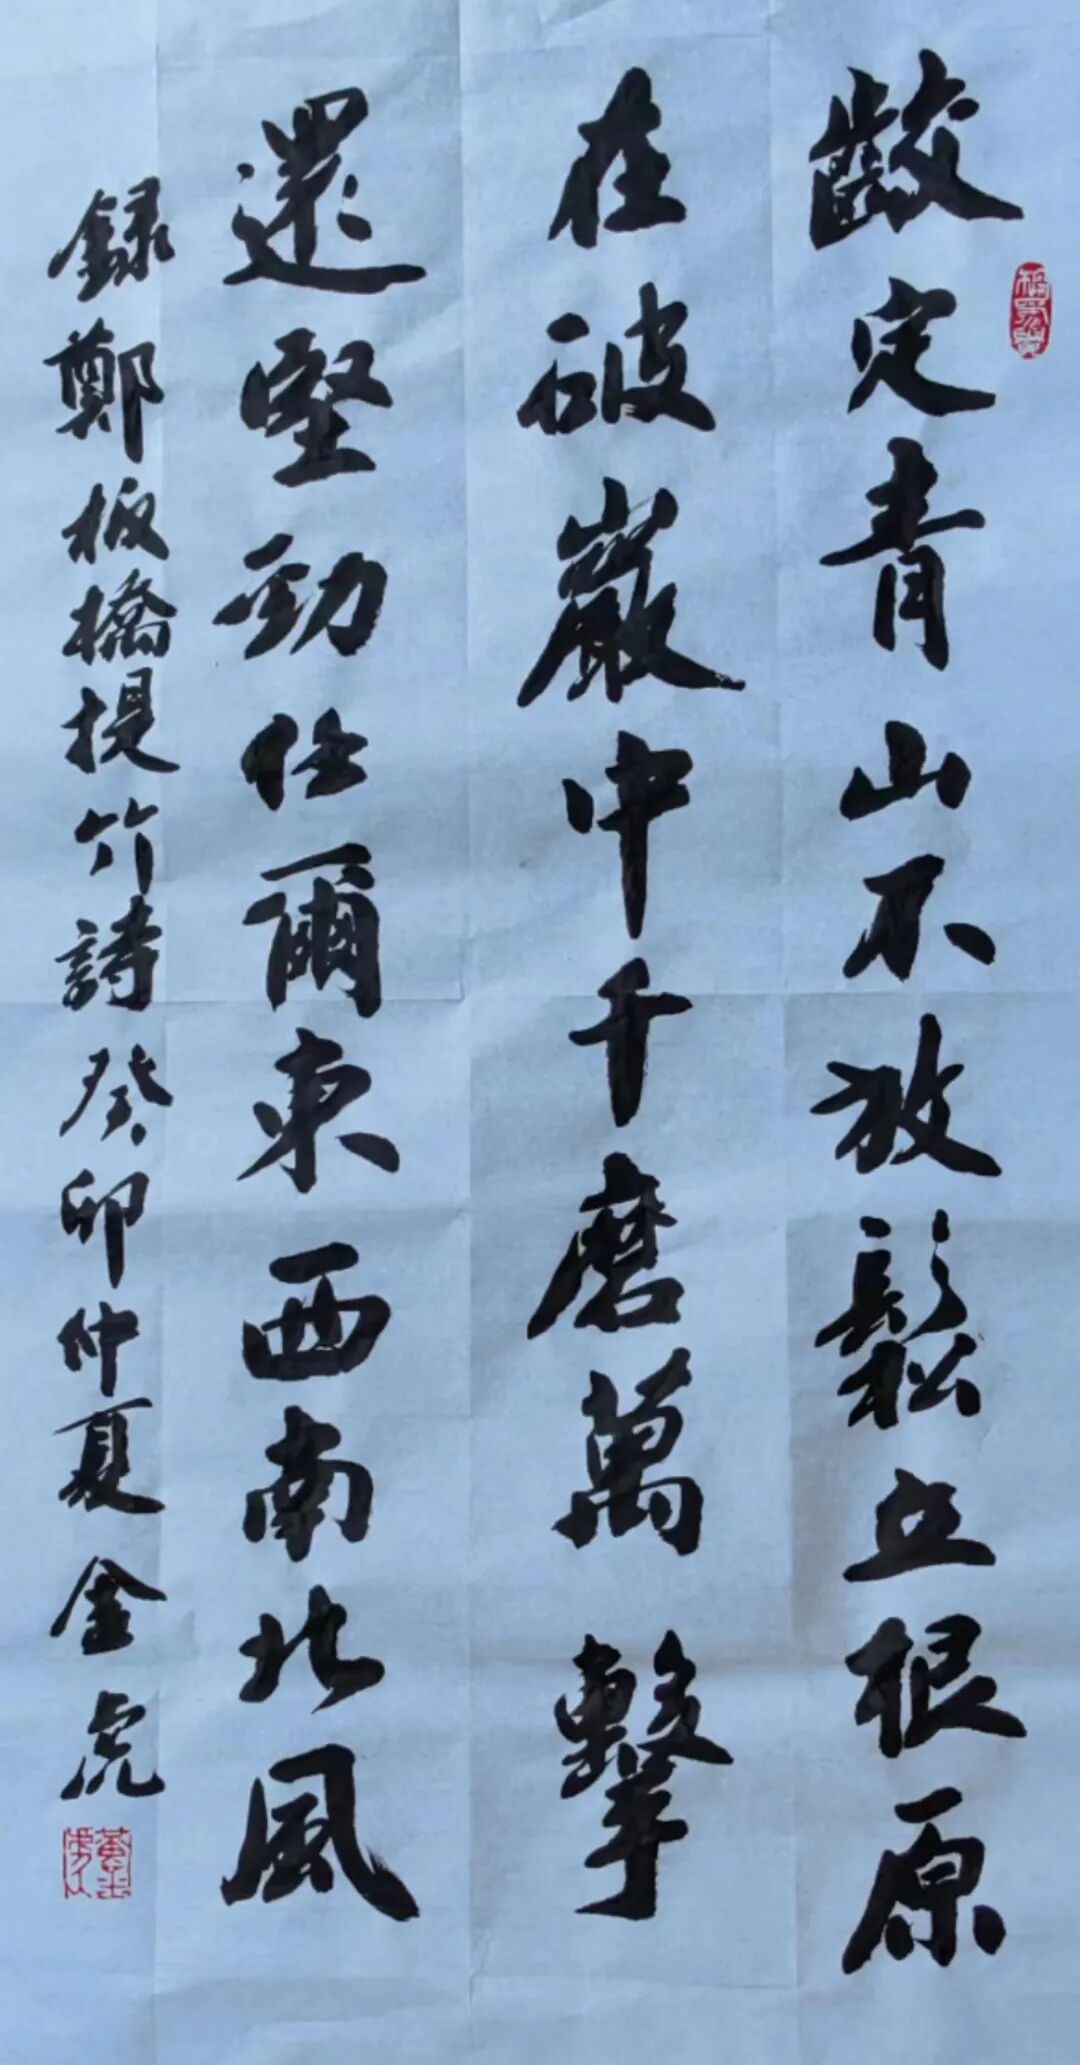 齩定青山不放鬆立根原
在破巖中千磨萬擊
還堅勁任爾東西南北風
録鄭板橋提竹詩癸卯仲夏金虎